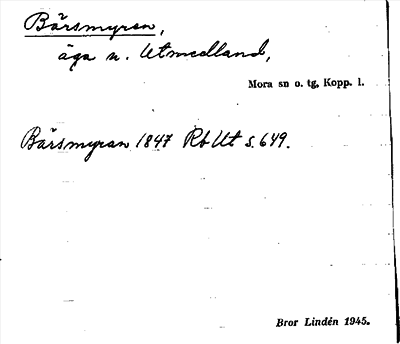 Bärsmyran,
äga n. Utmedland,
Mora sn o. tg, Kopp. l.
Bärsmyran 1847 Rb Ut s. 649.
Bror Lindén 1945.